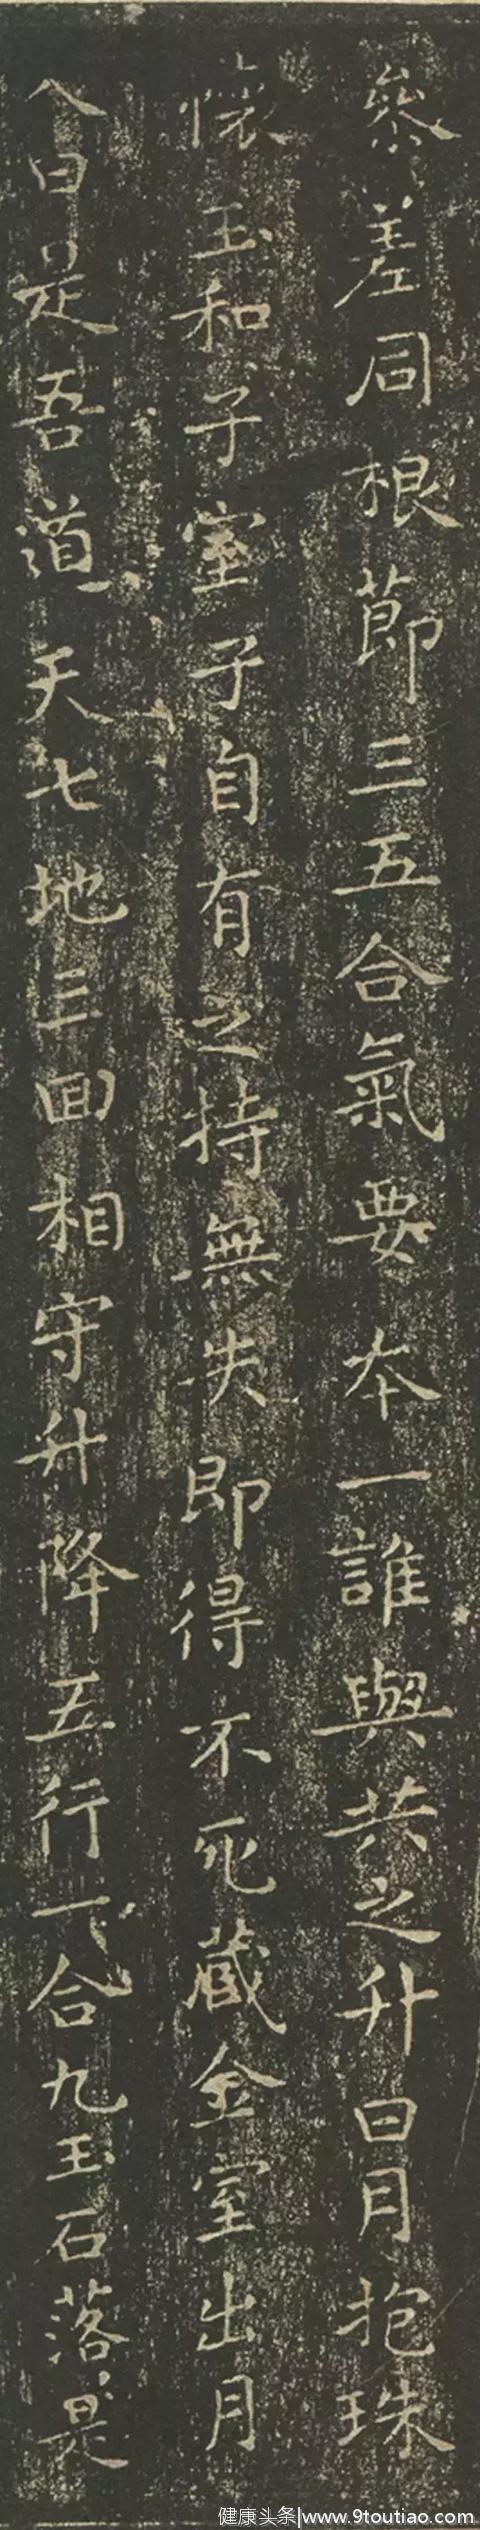 參差同根節三五合氣要本一誰與共之升日月抱珠
懷玉和子室子自有之持無失即得不死藏金室出月
入日是吾道天七地三回相守升降五行一合九玉石落是
健康头条|www.9toutiao.com